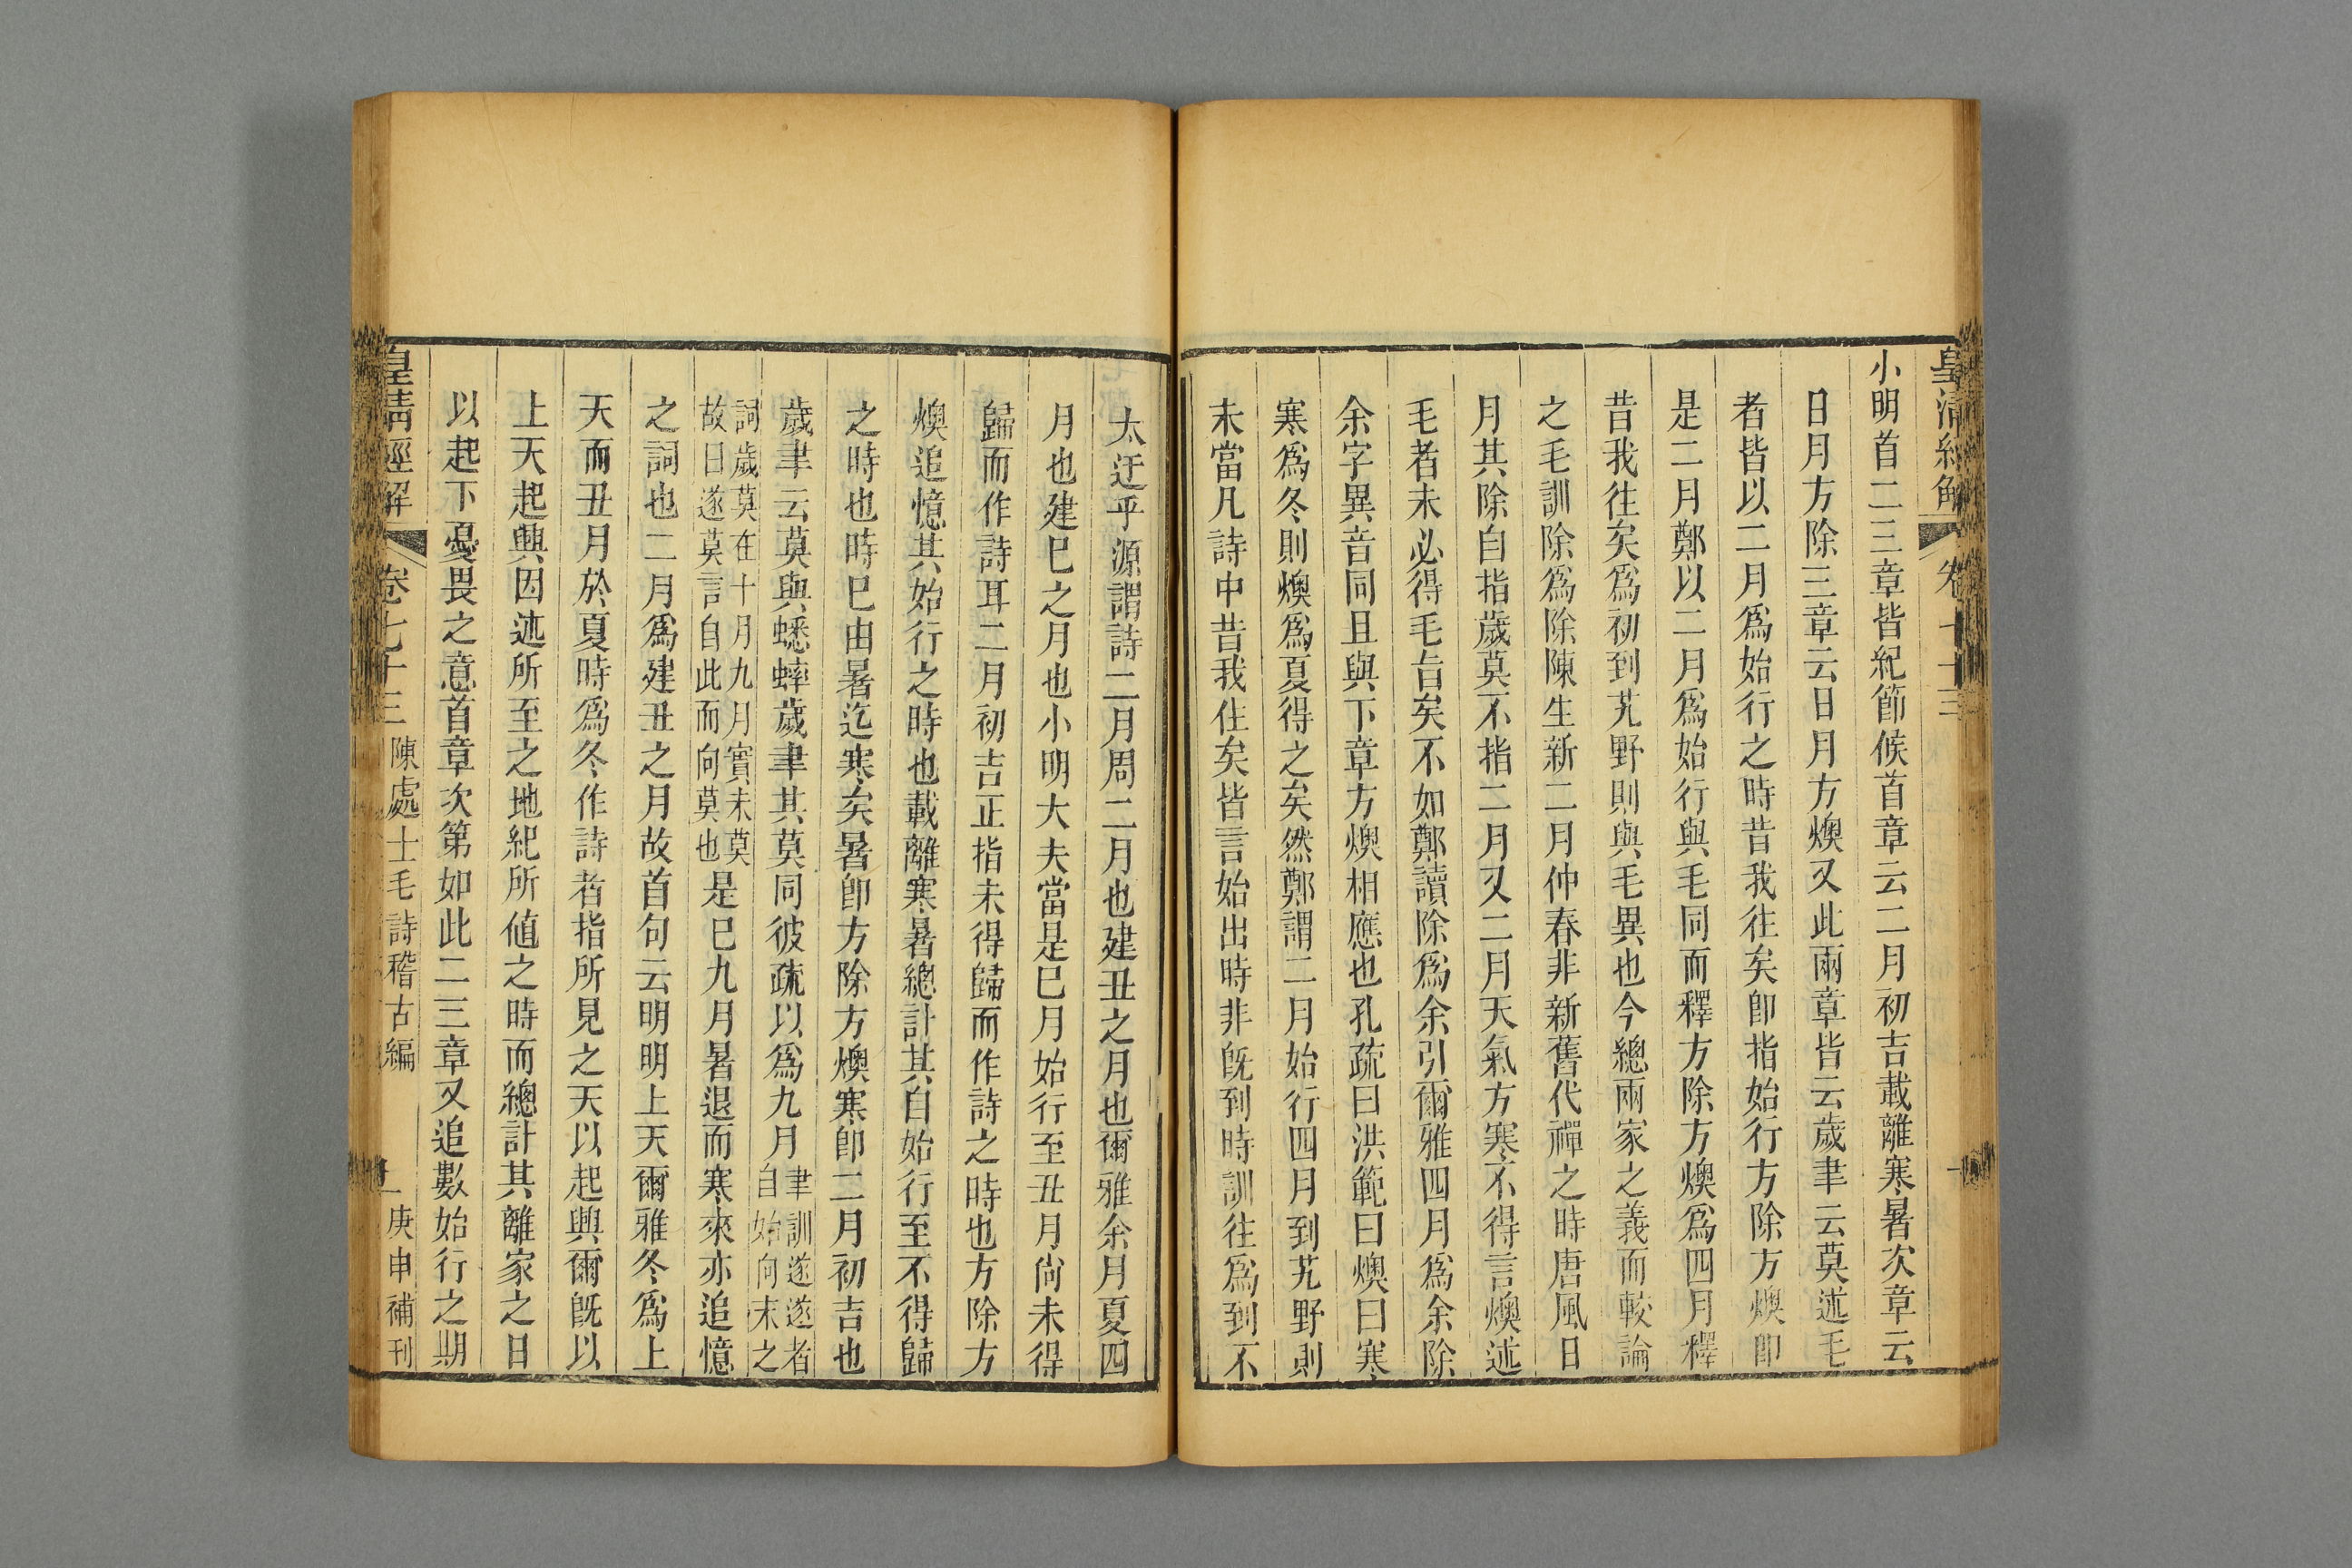 皇清經解 卷七十三
小明首二三章皆紀節候首章云二月初吉載離寒暑次章云
日月方除三章云日月方燠又此兩章皆云歲聿云莫述毛
者皆以二月爲始行之時昔我往矣卽指始行方除方燠卽
是二月鄭以二月爲始行與毛同而釋方除方燠爲四月釋
昔我往矣爲初到艽野則與毛異也今總兩家之義而較論
之毛訓除爲除陳生新二月仲春非新舊代禪之時唐風日
月其除自指歲莫不指二月又二月天氣方寒不得言燠述
毛者未必得毛旨矣不如鄭讀除爲余引爾雅四月爲余除
余字異音同且與下章方燠相應也孔疏曰洪範曰燠曰寒
寒爲冬則燠爲夏得之矣然鄭謂二月始行四月到艽野則
未當凡詩中昔我住矣皆言始出時非既到時訓往爲到不
太迂乎源謂詩二月周二月也建丑之月也爾雅余月夏四
月也建巳之月也小明大夫當是巳月始行至丑月尙未得
歸而作詩耳二月初吉正指未得歸而作詩之時也方除方
燠追憶其始行之時也載離寒暑總計其自始行至不得歸
之時也時巳由暑迄寒矣暑卽方除方燠寒卽二月初吉也
歲聿云莫與蟋蟀歲聿其莫同彼疏以爲九月聿訓遂遂者自始向末之
詞歲莫在十月九月實未莫故曰遂莫言自此而向莫也是巳九月暑退而寒來亦追憶
之詞也二月爲建丑之月故首句云明明上天爾雅冬爲上
天而丑月於夏時爲冬作詩者指所見之天以起興爾旣以
上天起興因述所至之地紀所値之時而總計其離家之日
以起下憂畏之意首章次第如此二三章又追數始行之期
皇清經解 卷七十三 陳處士毛詩稽古編 一 庚申補刊